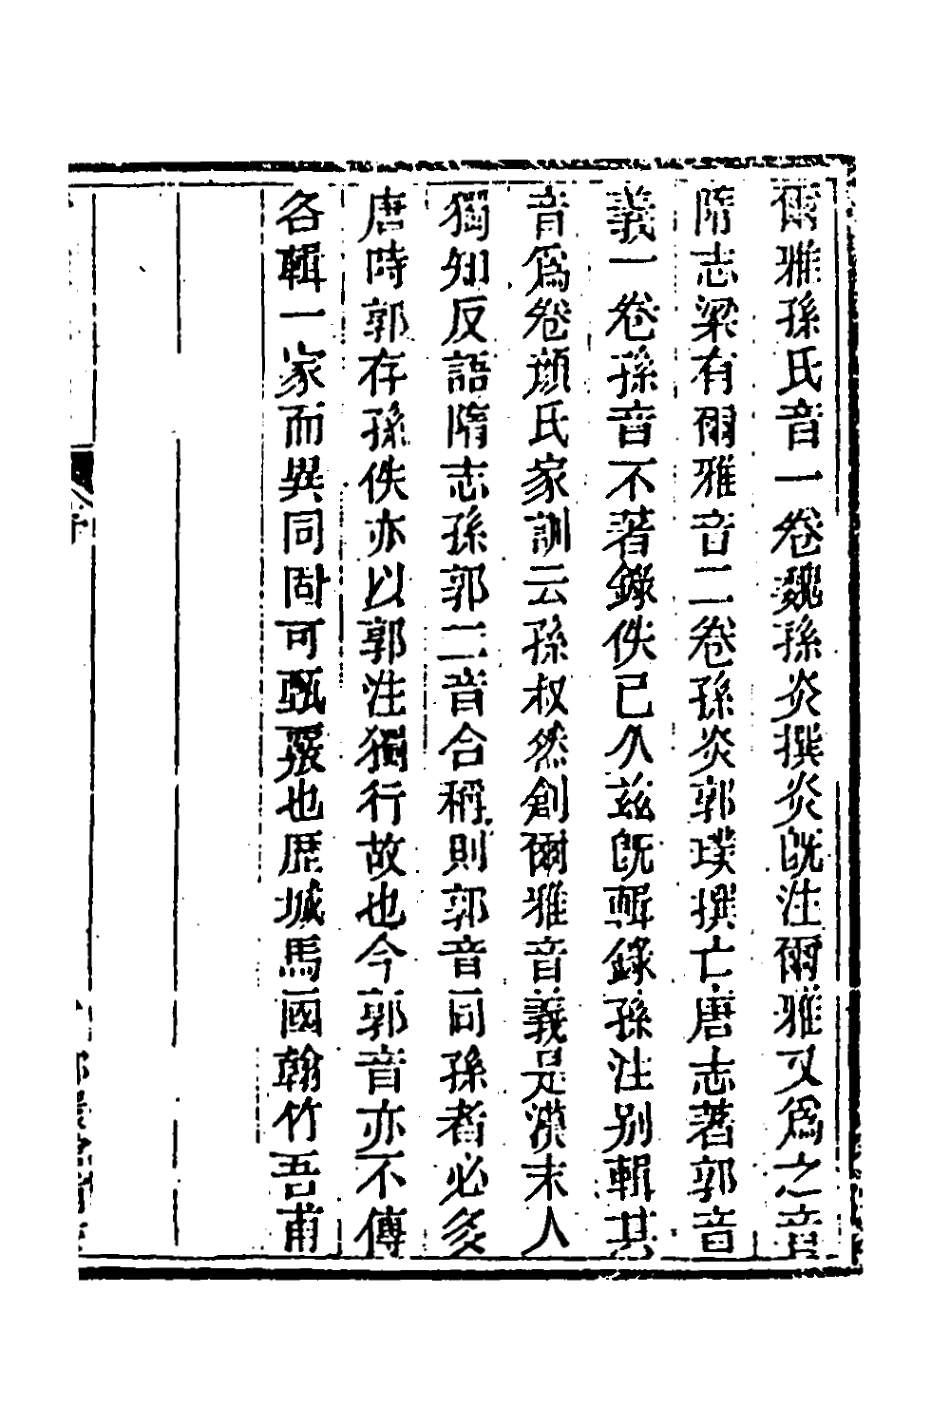 爾雅孫氏音一卷魏孫炎撰炎旣注爾雅又爲之音
隋志梁有爾雅音二卷孫炎郭璞撰亡唐志著郭音
義一卷孫音不著錄佚已久茲旣輯錄孫注别輯其
音爲卷顔氏家訓云孫叔然創爾雅音義是漢末人
獨知反語隋志孫郭二音合稱則郭音同孫者必多
唐時郭存孫佚亦以郭注獨行故也今郭音亦不傳
各輯一家而異同固可甄覈也歴城馬國翰竹吾甫